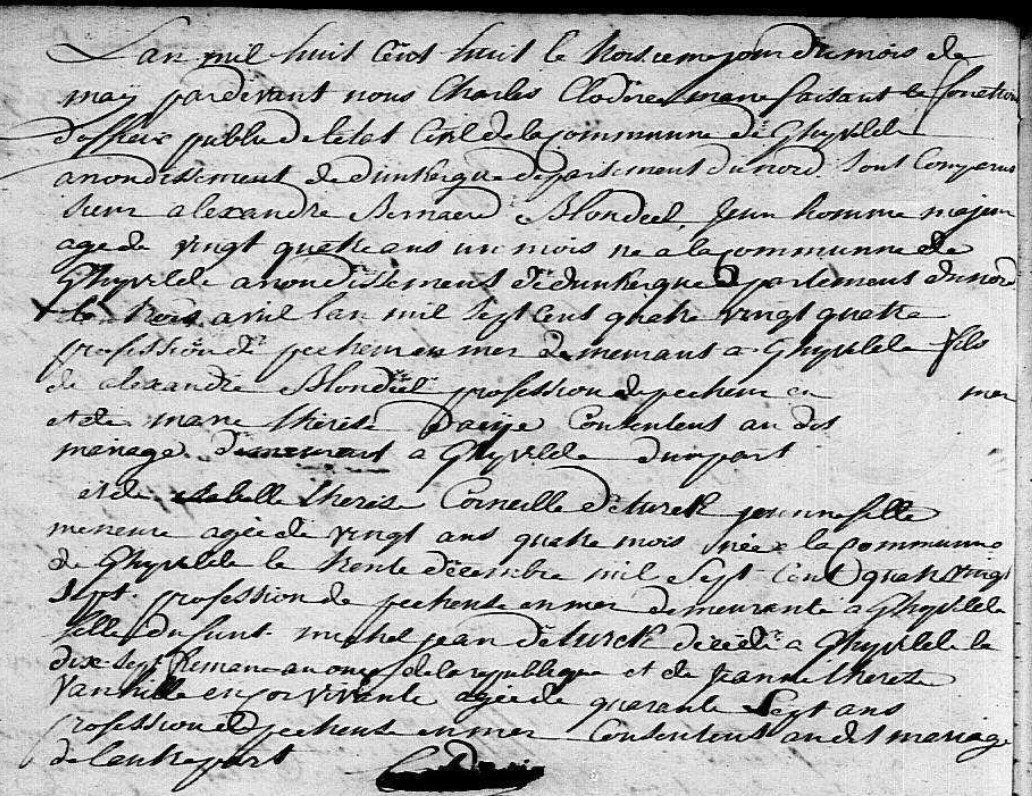 Lan mil huit Cent huit le troisieme jour du mois de
may pardevant nous Charles maire faisant la fonction
doffisier publie de letat Civil de la communne de Ghyvelde
arrondissement de dunkerque departement du nord sont Comparus
sieur alexandre Bernard Blondeel, jeun homme majeur
age de vingt quatre ans un mois ne a la communne de
Ghyvelde arrondissement de dunkerque departement du nord
le trois avril lan mil sept Cent quatre vingt quatre
profession de pecheur en mer demeurant a Ghyvelde fils
de alexandre Blondeel profession de pecheur en mer
et de marie therese Consentent au dit
mariage demeurant a Ghyvelde dunpart
et de therese Corneille deturck jeunne fille
meneure agée de vingt ans quatre mois née a la Communne
de Ghyvelde le trente decembre mil Sept Cent quatre vingt
Sept profession de pecheuse en mer demeurante a Ghyvelde
fille du funt michel jean deturck décédé a Ghyvelde le
dix sept an onze de la republique et de jeanne therese
encor vivante agée de quarante Sept ans
profession de pecheuse en mer Consentent au dit mariage
de lautre part